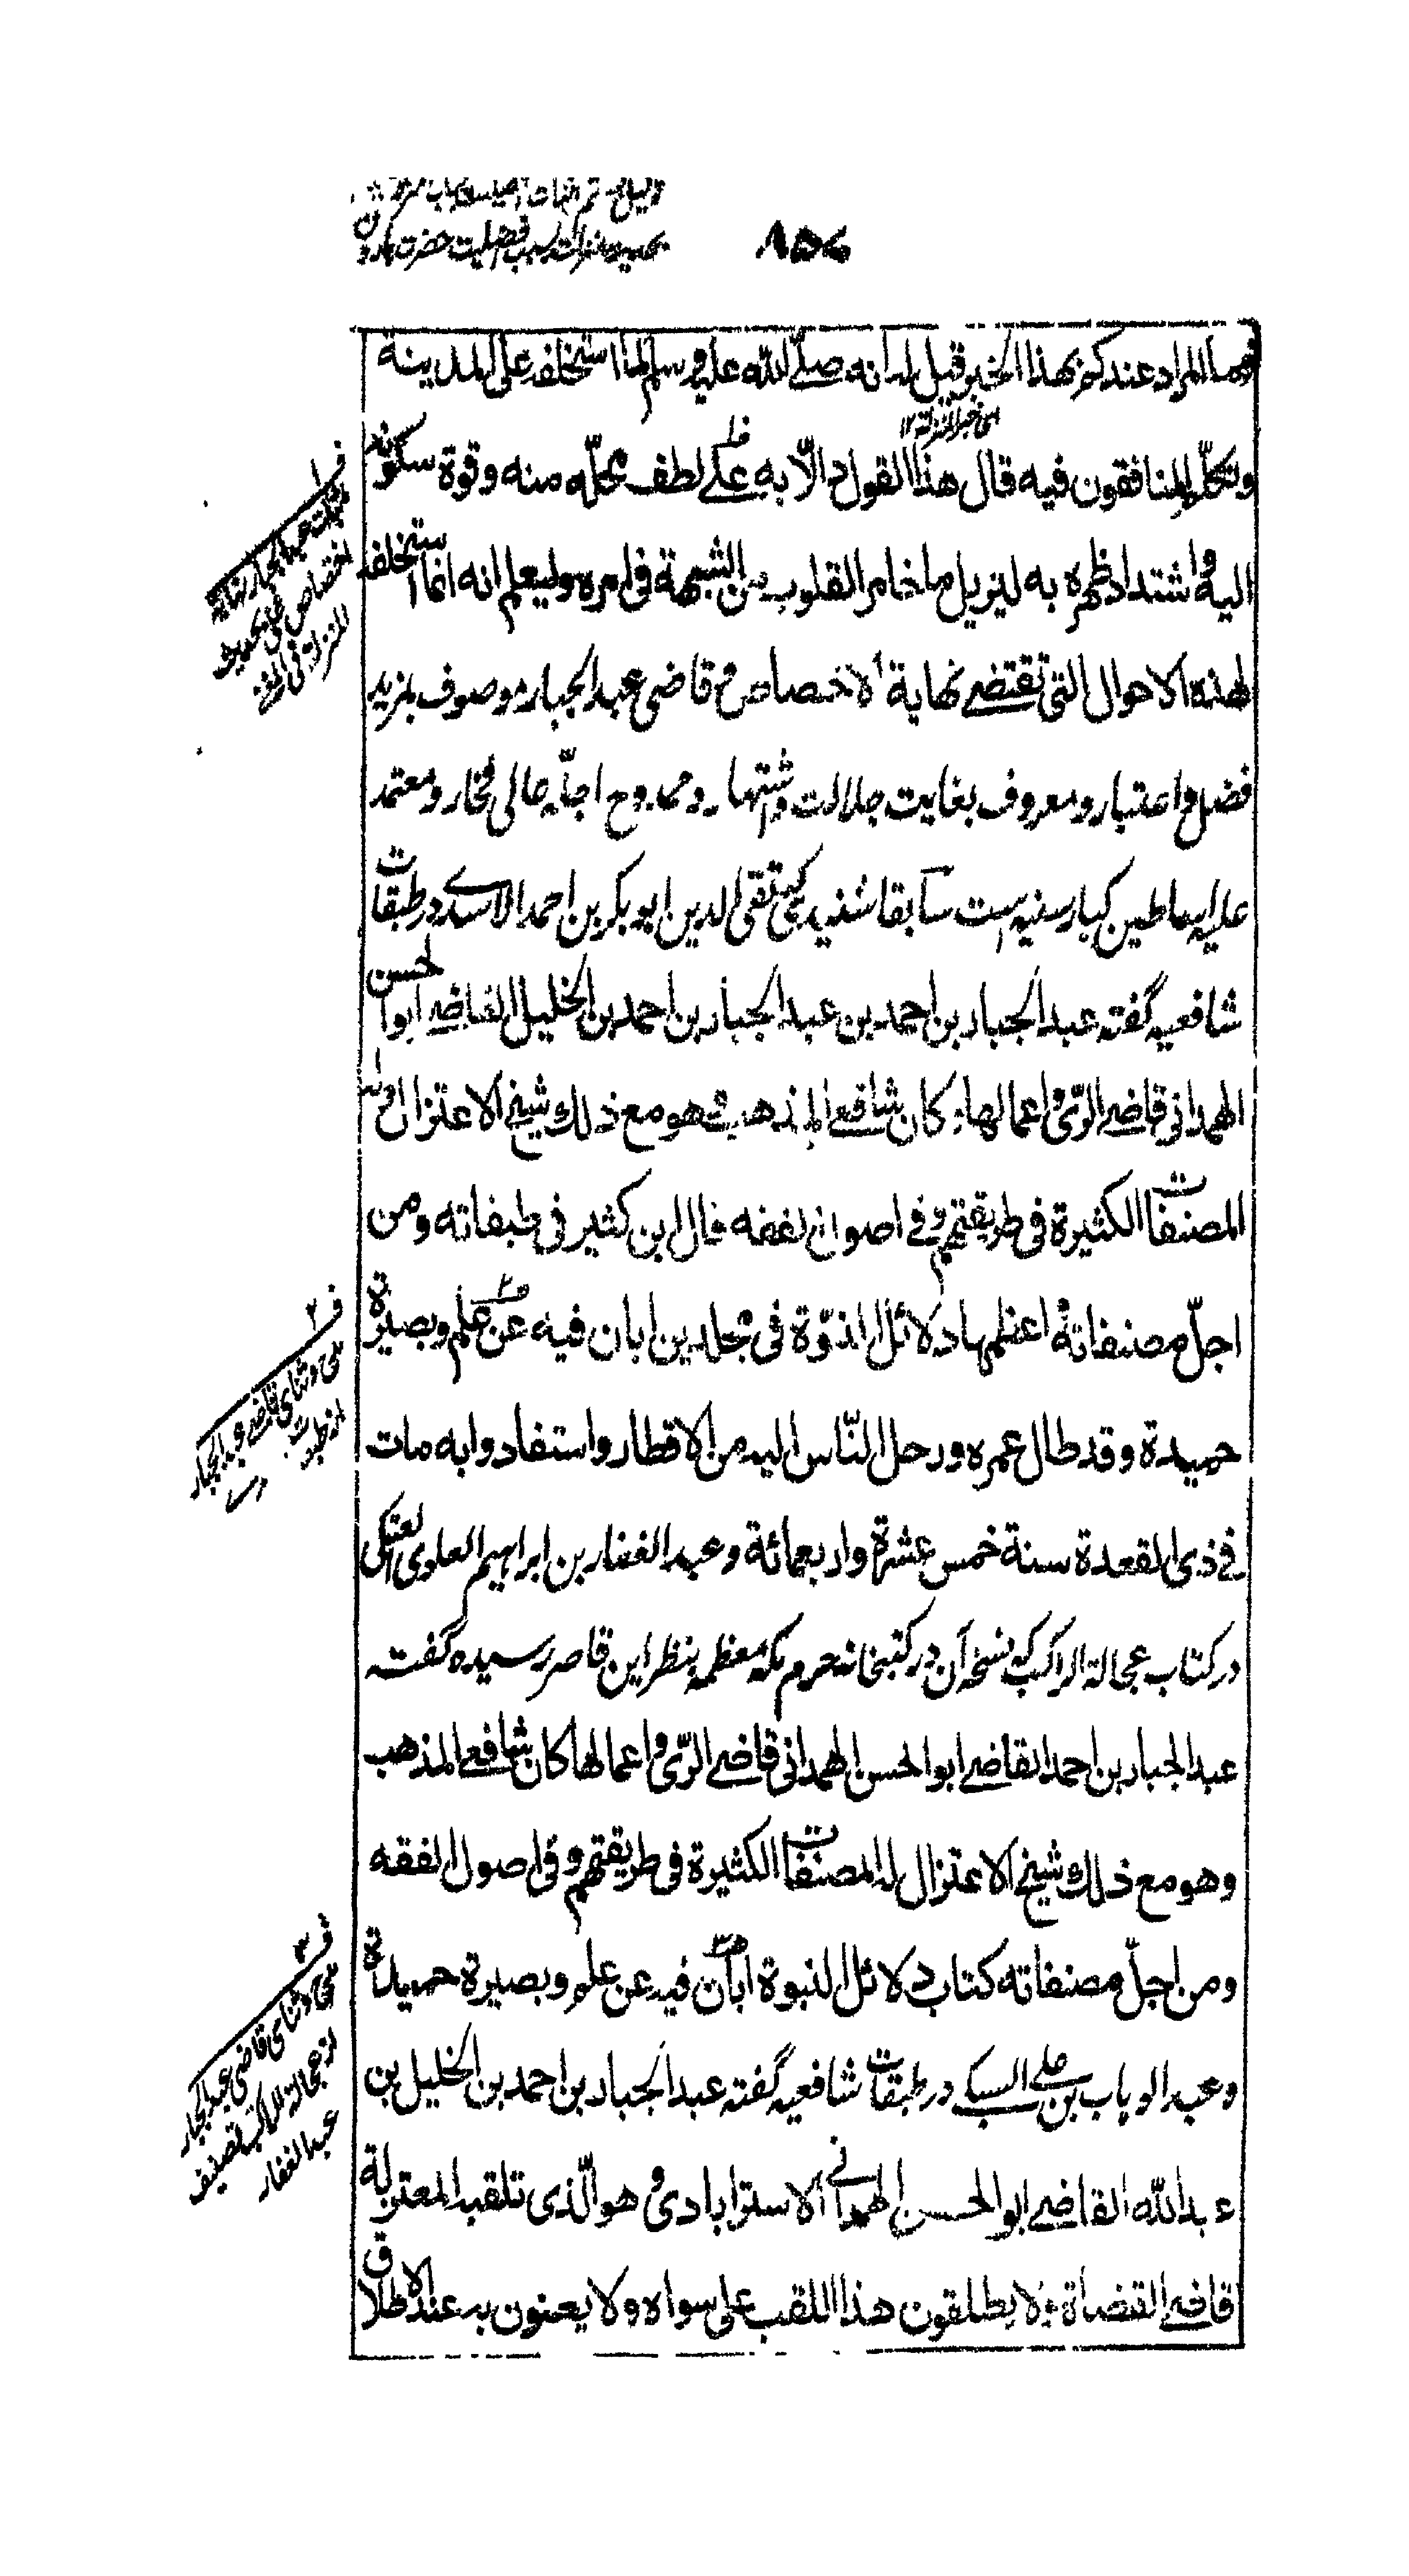 ۸۵۷
فما المراد عندكم بهذا الخبر قيل له انه صلّے الله عليه وسلم لمّا استخلفه على المدينة
وتكلّم المنافقون فيه قال هذا القول دالّا به علے لطف محلّه منه وقوة سكونه
اليه واشتداد ظهره به ليزيل ما خامر القلوب من الشبهة فى امره وليعلم انه انما استخلفه
لهذه الاحوال التى تقتضے نهاية الاختصاص و قاضى عبد الجبار موصوف بمزيد
فضل و اعتبار و معروف بغايت جلالت و اشتهار و ممدوح اجلّه عالى فخار و معتمد
عليه اساطين كبار سنيه است سابقا شنيدى كه تقى الدين ابو بكر بن احمد الاسدے در طبقات
شافعيه گفته عبد الجبار بن احمد بن عبد الجبار بن احمد بن الخليل القاضے ابو الحسن
الهمدانى قاضے الرّى و اعمالها و كان شافعے المذهب و هو مع ذلك شيخ الاعتزال و له
المصنفات الكثيرة فى طريقتهم و فے اصول الفقه قال ابن كثير فى طبقاته و من
اجلّ مصنفاته و اعظمها دلائل النبوّة فى مجلدين ابان فيه عن علم و بصيرة
حميدة و قد طال عمره و رحل النّاس اليه من الاقطار و استفادوا به مات
فے ذى القعدة سنة خمس عشرة و اربعمائة و عبد الغفار بن ابراهيم العلوى العكى
در كتاب عجالة الراكب كه نسخه آن در كتبخانه حرم مكه معظمه بنظر اين قاصر رسيده گفته
عبد الجبار بن احمد القاضے ابو الحسن الهمدانى قاضے الرّى و اعمالها كان شافعے المذهب
وهو مع ذلك شيخ الاعتزال له المصنفات الكثيرة فى طريقتهم و فى اصول الفقه
و من اجلّ مصنفاته كتاب دلائل النبوة ابان فيه عن علم و بصيرة حميدة
و عبد الوهاب بن على السبكے در طبقات شافعيه گفته عبد الجبار بن احمد بن الخليل بن
عبد الله القاضے ابو الحسن الهمدانے الاسترابادى و هو الّذى تلقبه المعتزلة
قاضے القضاة و لا يطلقون هذا اللقب على سواه و لا يعنون به عند الاطلاق
ف۲
مدح و ثناى قاضے عبد الجبار
ف۳
مدح و ثناى قاضى عبد الجبار
از عجالة الراكب تصنيف
عبد الغفار